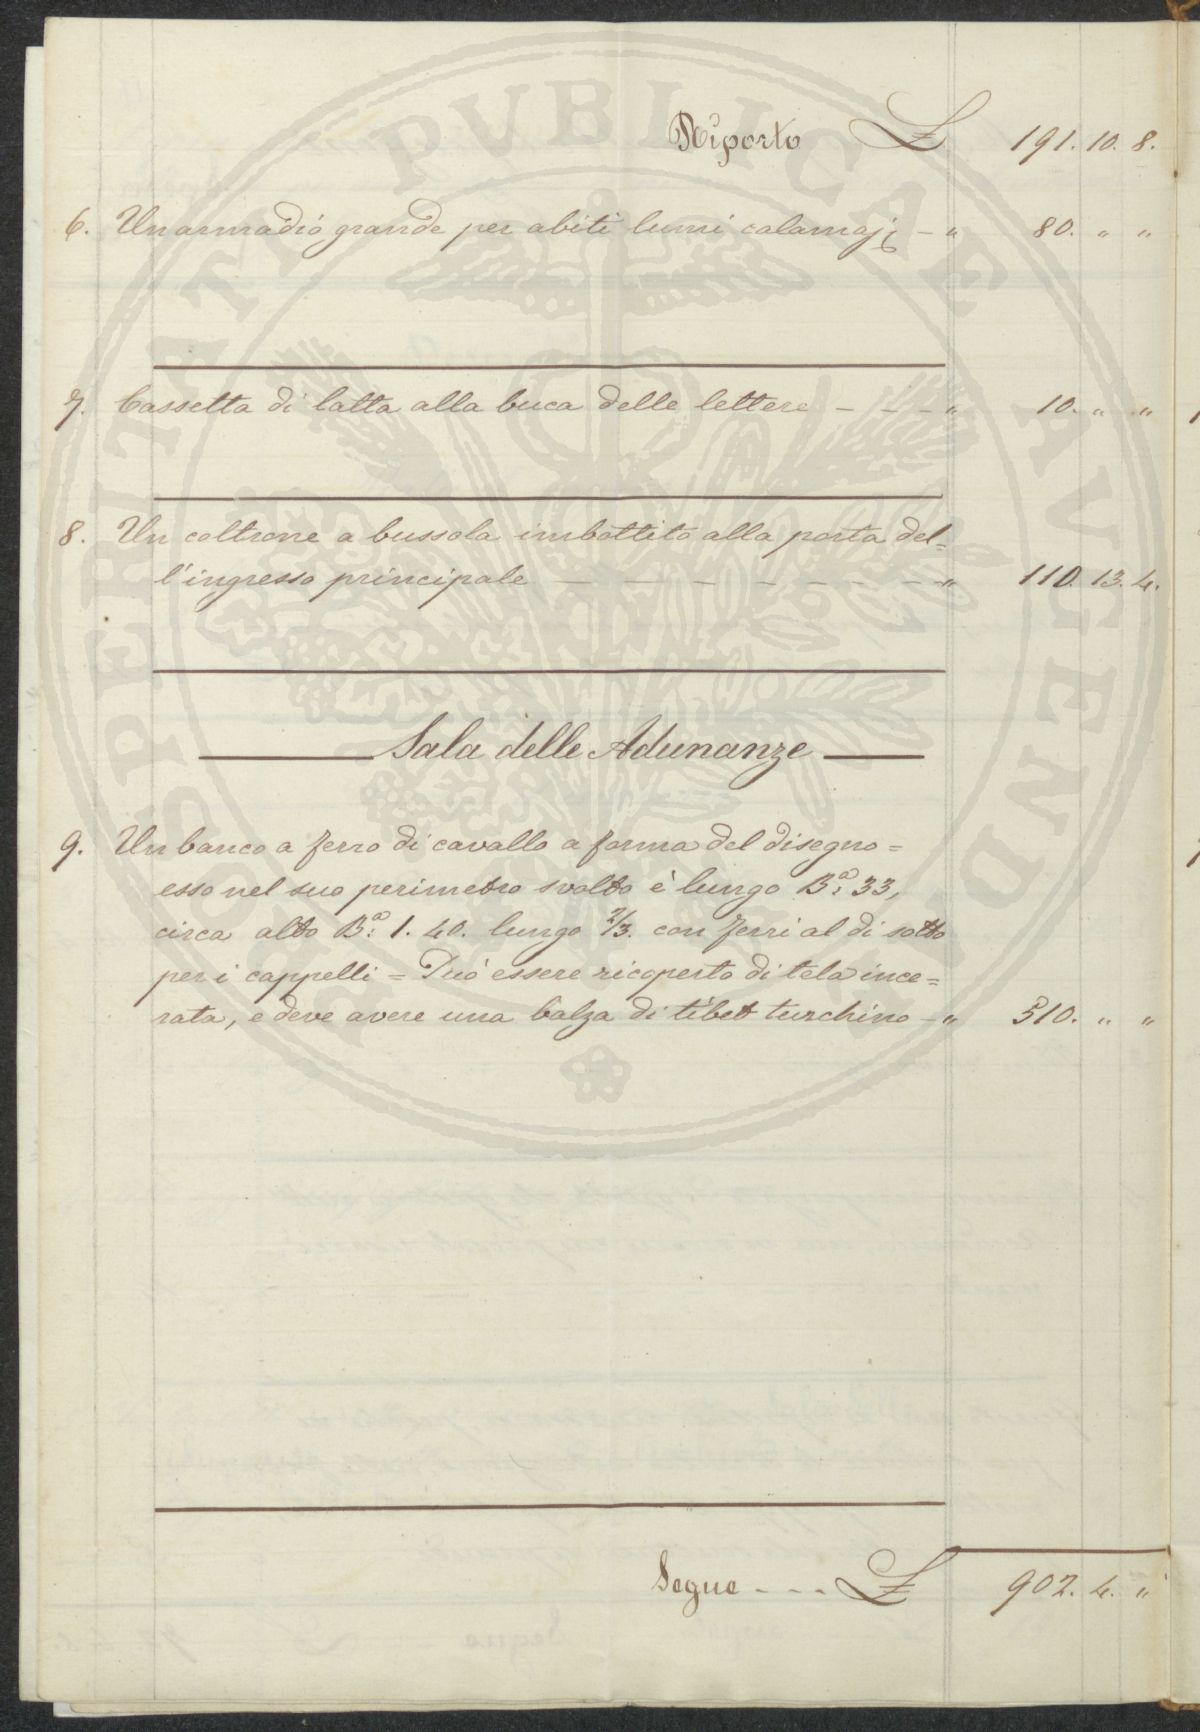 Riporto £ 191. 10. 8.
6. Un armadio grande per abiti lumi calamaj; - " 80. " "
7. Cassetta di latta alla buca delle lettere - - - " 10. " "
8. Un coltrone a bussola imbottito alla porta del=
l'ingresso principale - - - - - - - - " 110. 13. 4.
Sala delle Adunanze
9. Un banco a ferro di cavallo a forma del disegno =
esso nel suo perimetro svolto è lungo B.a 33,
circa alto B.a 1. 40. lungo 2/3. con ferri al di sotto
per i cappelli = Può essere ricoperto di tela ince=
rata, e deve avere una balza di tibet turchino - " 510. " "
Segue - - - £ 902. 4. "
PROSPERITATI PVBLICAE AVGENDAE